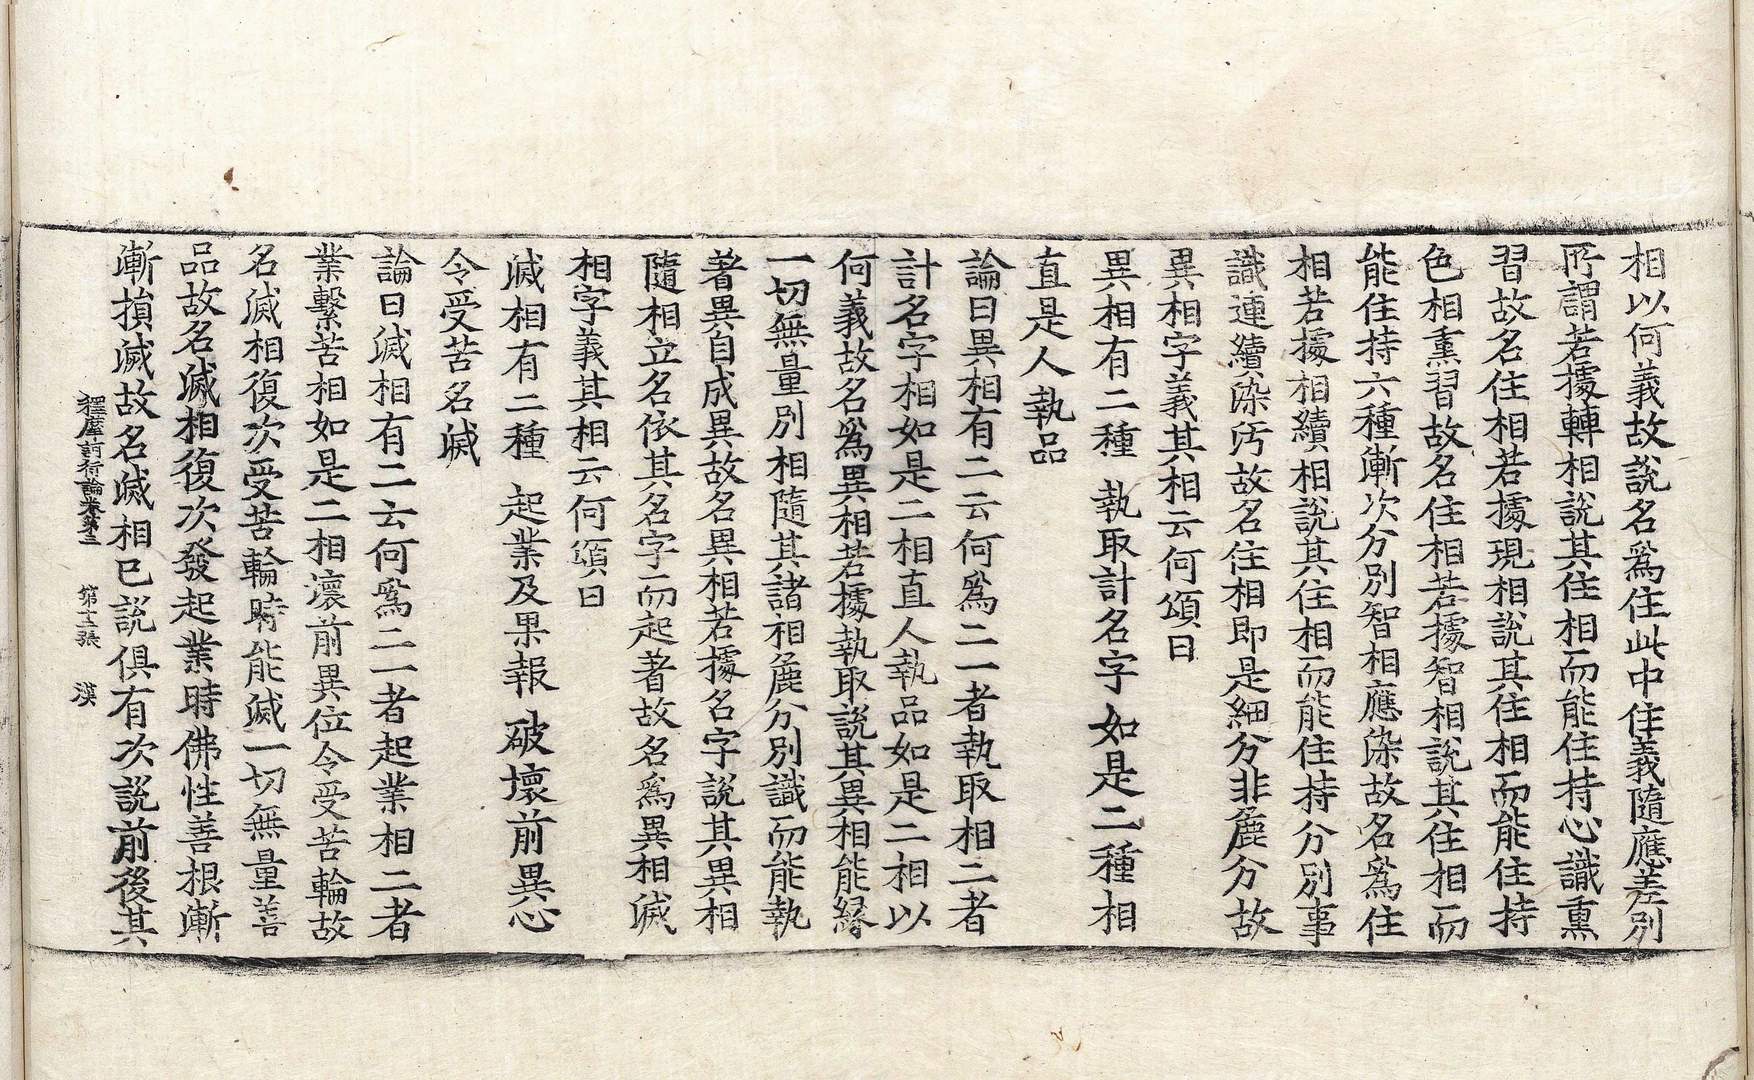 相以何義故說名爲住此中住義隨應差別
所謂若據轉相說其住相而能住持心識熏
習故名住相若據現相說其住相而能住持
色相熏習故名住相若據智相說其住相而
能住持六種漸次分別智相應染故名爲住
相若據相續相說其住相而能住持分別事
識連續染污故名住相即是細分非麁分故
異相字義其相云何頌曰
異相有二種 執取計名字 如是二種相
直是人執品
論曰異相有二云何爲二一者執取相二者
計名字相如是二相直人執品如是二相以
何義故名爲異相若據執取說其異相能緣
一切無量別相隨其諸相麁分別識而能執
著異自成異故名異相若據名字說其異相
隨相立名依其名字而起著故名爲異相滅
相字義其相云何頌曰
滅相有二種 起業及果報 破壞前異心
令受苦名滅
論曰滅相有二云何爲二一者起業相二者
業繫苦相如是二相壞前異位令受苦輪故
名滅相復次受苦輪時能滅一切無量善
品故名滅相復次發起業時佛性善根漸
漸損滅故名滅相已說俱有次說前後其
釋摩訶衍論卷第三 第十三張 漢